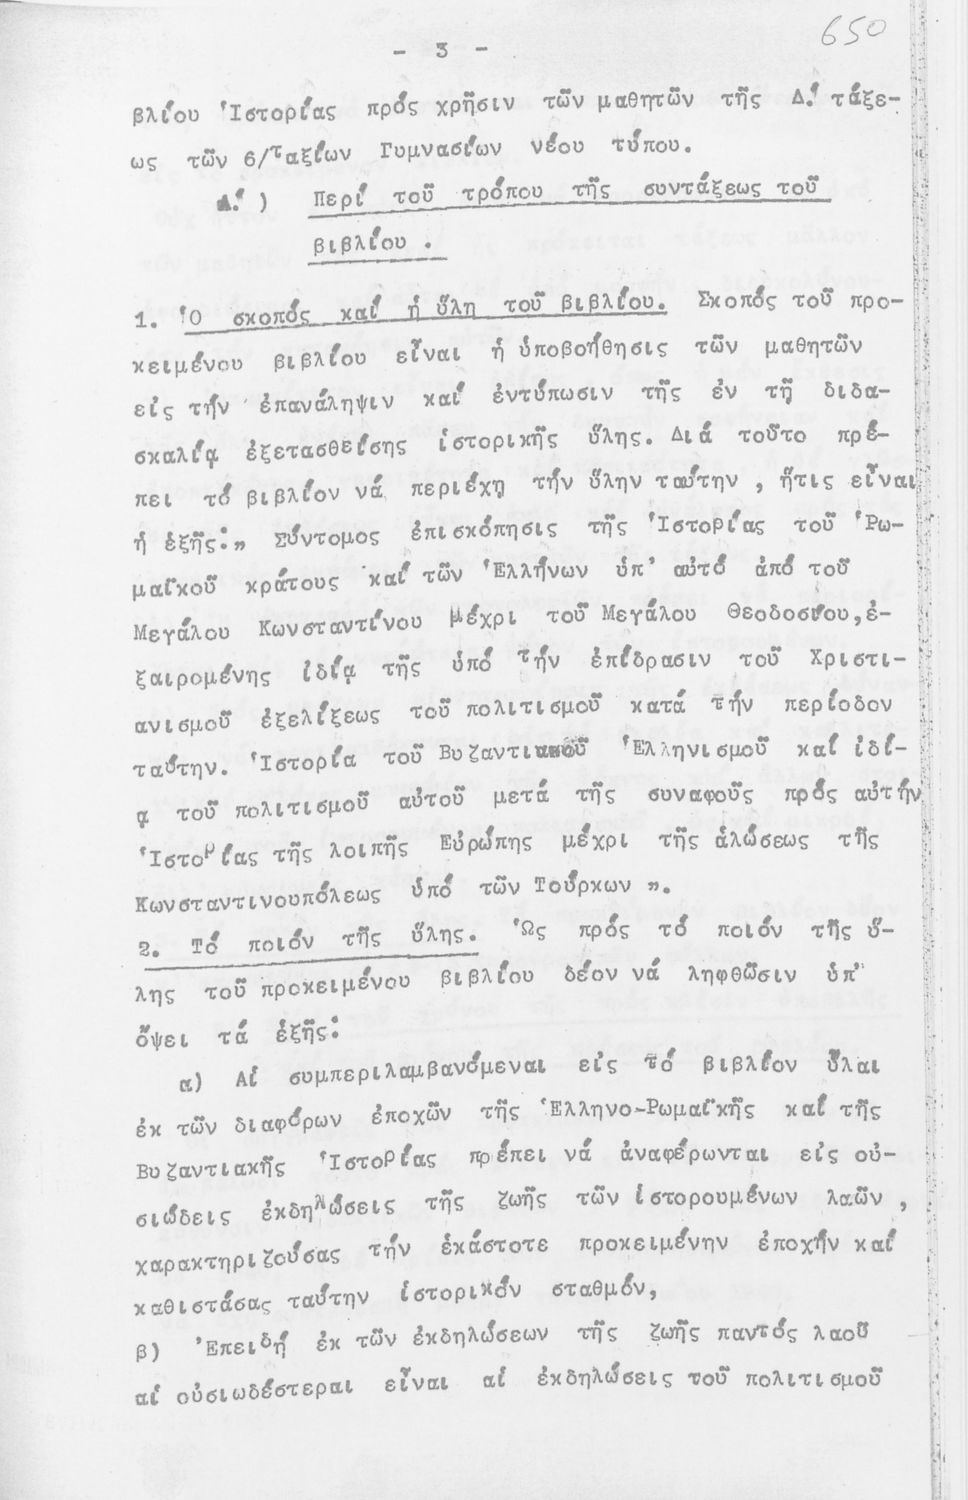 650
- 3 -
βλίου Ἱστορίας πρός χρῆσιν τῶν μαθητῶν τῆς Δ.΄ τάξε-
ως τῶν 6/ταξίων Γυμνασίων νέου τύπου.
Α.΄ ) Περί τοῦ τρόπου τῆς συντάξεως τοῦ
βιβλίου .
1. Ὁ σκοπός καί ἡ ὕλη τοῦ βιβλίου. Σκοπός τοῦ προ-
κειμένου βιβλίου εἶναι ἡ ὑποβοήθησις τῶν μαθητῶν
εἰς τήν ἐπανάληψιν καί ἐντύπωσιν τῆς ἐν τῇ διδα-
σκαλίᾳ ἐξετασθείσης ἱστορικῆς ὕλης. Διά τοῦτο πρέ-
πει τό βιβλίον νά περιέχῃ τήν ὕλην ταύτην , ἥτις εἶναι
ἡ ἑξῆς:„ Σύντομος ἐπισκόπησις τῆς Ἱστορίας τοῦ Ῥω-
μαϊκοῦ κράτους καί τῶν Ἑλλήνων ὑπ' αὐτό ἀπό τοῦ
Μεγάλου Κωνσταντίνου μέχρι τοῦ Μεγάλου Θεοδοσίου,ἐ-
ξαιρομένης ἰδίᾳ τῆς ὑπό τήν ἐπίδρασιν τοῦ Χριστι-
ανισμοῦ ἐξελίξεως τοῦ πολιτισμοῦ κατά τήν περίοδον
ταύτην. Ἱστορία τοῦ Βυζαντιακοῦ Ἑλληνισμοῦ καί ἰδί-
ᾳ τοῦ πολιτισμοῦ αὐτοῦ μετά τῆς συναφοῦς πρός αὐτήν
Ἱστορίας τῆς λοιπῆς Εὐρώπης μέχρι τῆς ἁλώσεως τῆς
Κωνσταντινουπόλεως ὑπό τῶν Τούρκων „.
2. Τό ποιόν τῆς ὕλης. Ὡς πρός τό ποιόν τῆς ὕ-
λης τοῦ προκειμένου βιβλίου δέον νά ληφθῶσιν ὑπ'
ὄψει τά ἑξῆς:
α) Αἱ συμπεριλαμβανόμεναι εἰς τό βιβλίον ὗλαι
ἐκ τῶν διαφόρων ἐποχῶν τῆς Ἑλληνο-Ρωμαϊκῆς καί τῆς
Βυζαντιακῆς Ἱστορίας πρέπει νά ἀναφέρωνται εἰς οὐ-
σιώδεις ἐκδηλώσεις τῆς ζωῆς τῶν ἱστορουμένων λαῶν ,
χαρακτηριζούσας τήν ἑκάστοτε προκειμένην ἐποχήν καί
καθιστάσας ταύτην ἱστορικόν σταθμόν,
β) Ἐπειδή ἐκ τῶν ἐκδηλώσεων τῆς ζωῆς παντός λαοῦ
αἱ οὐσιωδέστεραι εἶναι αἱ ἐκδηλώσεις τοῦ πολιτισμοῦ